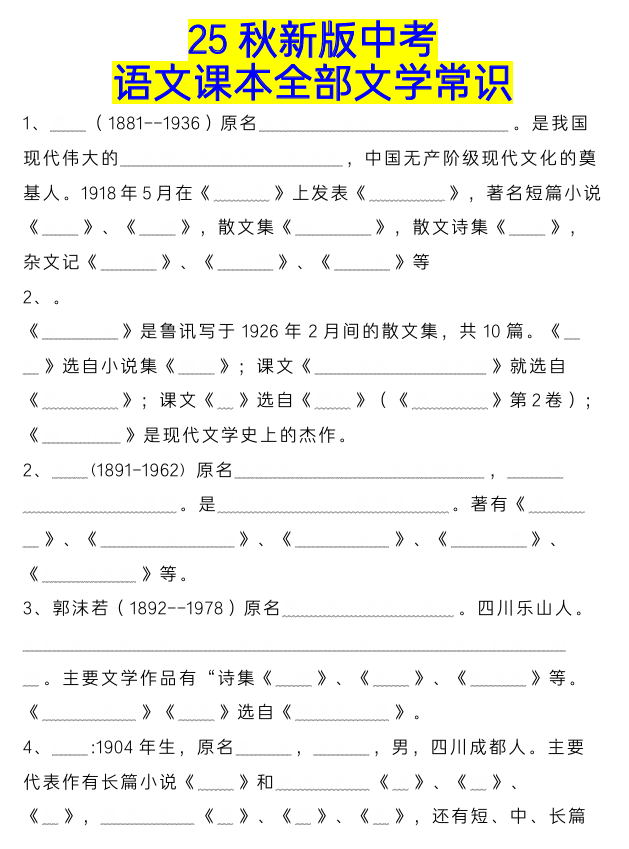 25 秋新版中考
语文课本全部文学常识
1、____（1881--1936）原名____________________________。是我国
现代伟大的_________________________，中国无产阶级现代文化的奠
基人。1918 年 5 月在《______》上发表《________》，著名短篇小说
《____》、《____》，散文集《________》，散文诗集《____》，
杂文记《______》、《______》、《______》等
2、。
《________》是鲁讯写于 1926 年 2 月间的散文集，共 10 篇。《__
__》选自小说集《____》；课文《__________________》就选自
《________》；课文《__》选自《____》（《________》第 2 卷）；
《________》是现代文学史上的杰作。
2、____(1891-1962) 原名____________________________，______
_________________。是__________________________。著有《______
__》、《______________》、《__________》、《________》、
《__________》等。
3、郭沫若（1892--1978）原名___________________。四川乐山人。
____________________________________________________________
__。主要文学作品有“诗集《____》、《____》、《______》等。
《__________》《____》选自《__________》。
4、____:1904 年生，原名______，______，男，四川成都人。主要
代表作有长篇小说《____》和__________《__》、《__》、
《__》，__________《__》、《__》、《__》，还有短、中、长篇